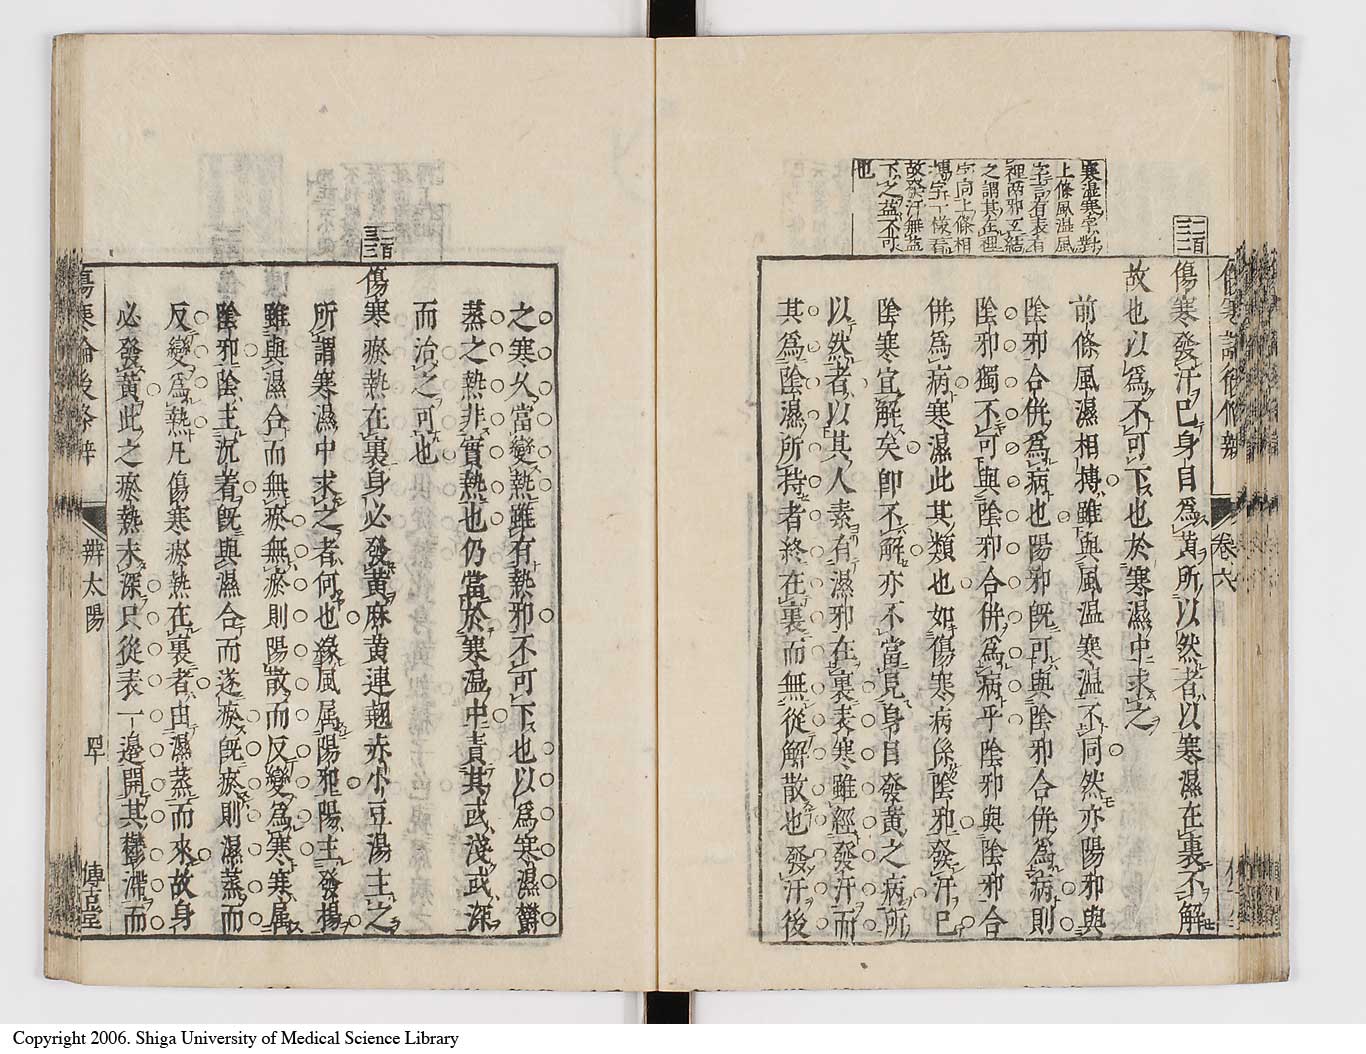 二百三十二
傷寒發汗已身目為黃所以然者以寒濕在裏不解
故也以為不可下也於寒濕中求之
寒濕寒字對
上條風濕風
字言有表有
裡兩邪互結
之謂其在裡
字向上條相
搏字下條看
故發汗無益
下之益不可
也
前條風濕相搏雖與風温寒温不同然亦陽邪與
陰邪合併為病也陽邪既可與陰邪合併為病則
陰邪獨不可與陰邪合併為病乎陰邪與陰邪合
併為病寒濕此其類也如傷寒病係陰邪發汗已
陰寒宜解矣即不解亦不當見身目發黃之病所
以然者以其人素有濕邪在裏表寒雖經發汗而
其為陰濕所持者終在裏而無從解散也發汗後
卷六
之寒久當變熱雖有熱邪不可下也以為寒濕欝
蒸之熱非實熱也仍當於寒温中責其或淺或深
而治之可也
二百三十三
傷寒瘀熱在裏身必發黃麻黃連翹赤小豆湯主之
所謂寒濕中求之者何也緣風属陽邪陽主發揚
雖與濕合而無瘀無瘀則陽散而反變為寒寒属
陰邪陰主沉者既與濕合而遂瘀既瘀則濕蒸而
反變為熱凡傷寒瘀熱在裏者由濕蒸而來故身
必發黃此之瘀熱未深只從表一邊開其鬱滞而
傷寒論後條辨
辨太陽
四十